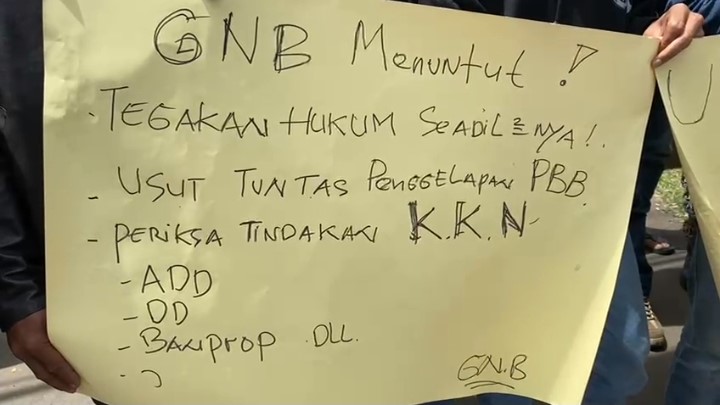 GNB Menuntut !
- TEGAKAN HUKUM SEADIL2NYA !.
- USUT TUNTAS PENGGELAPAN PBB.
- PERIKSA TINDAKAN K.K.N-
- ADD
- DD
- BANPROP DLL.
GN.B